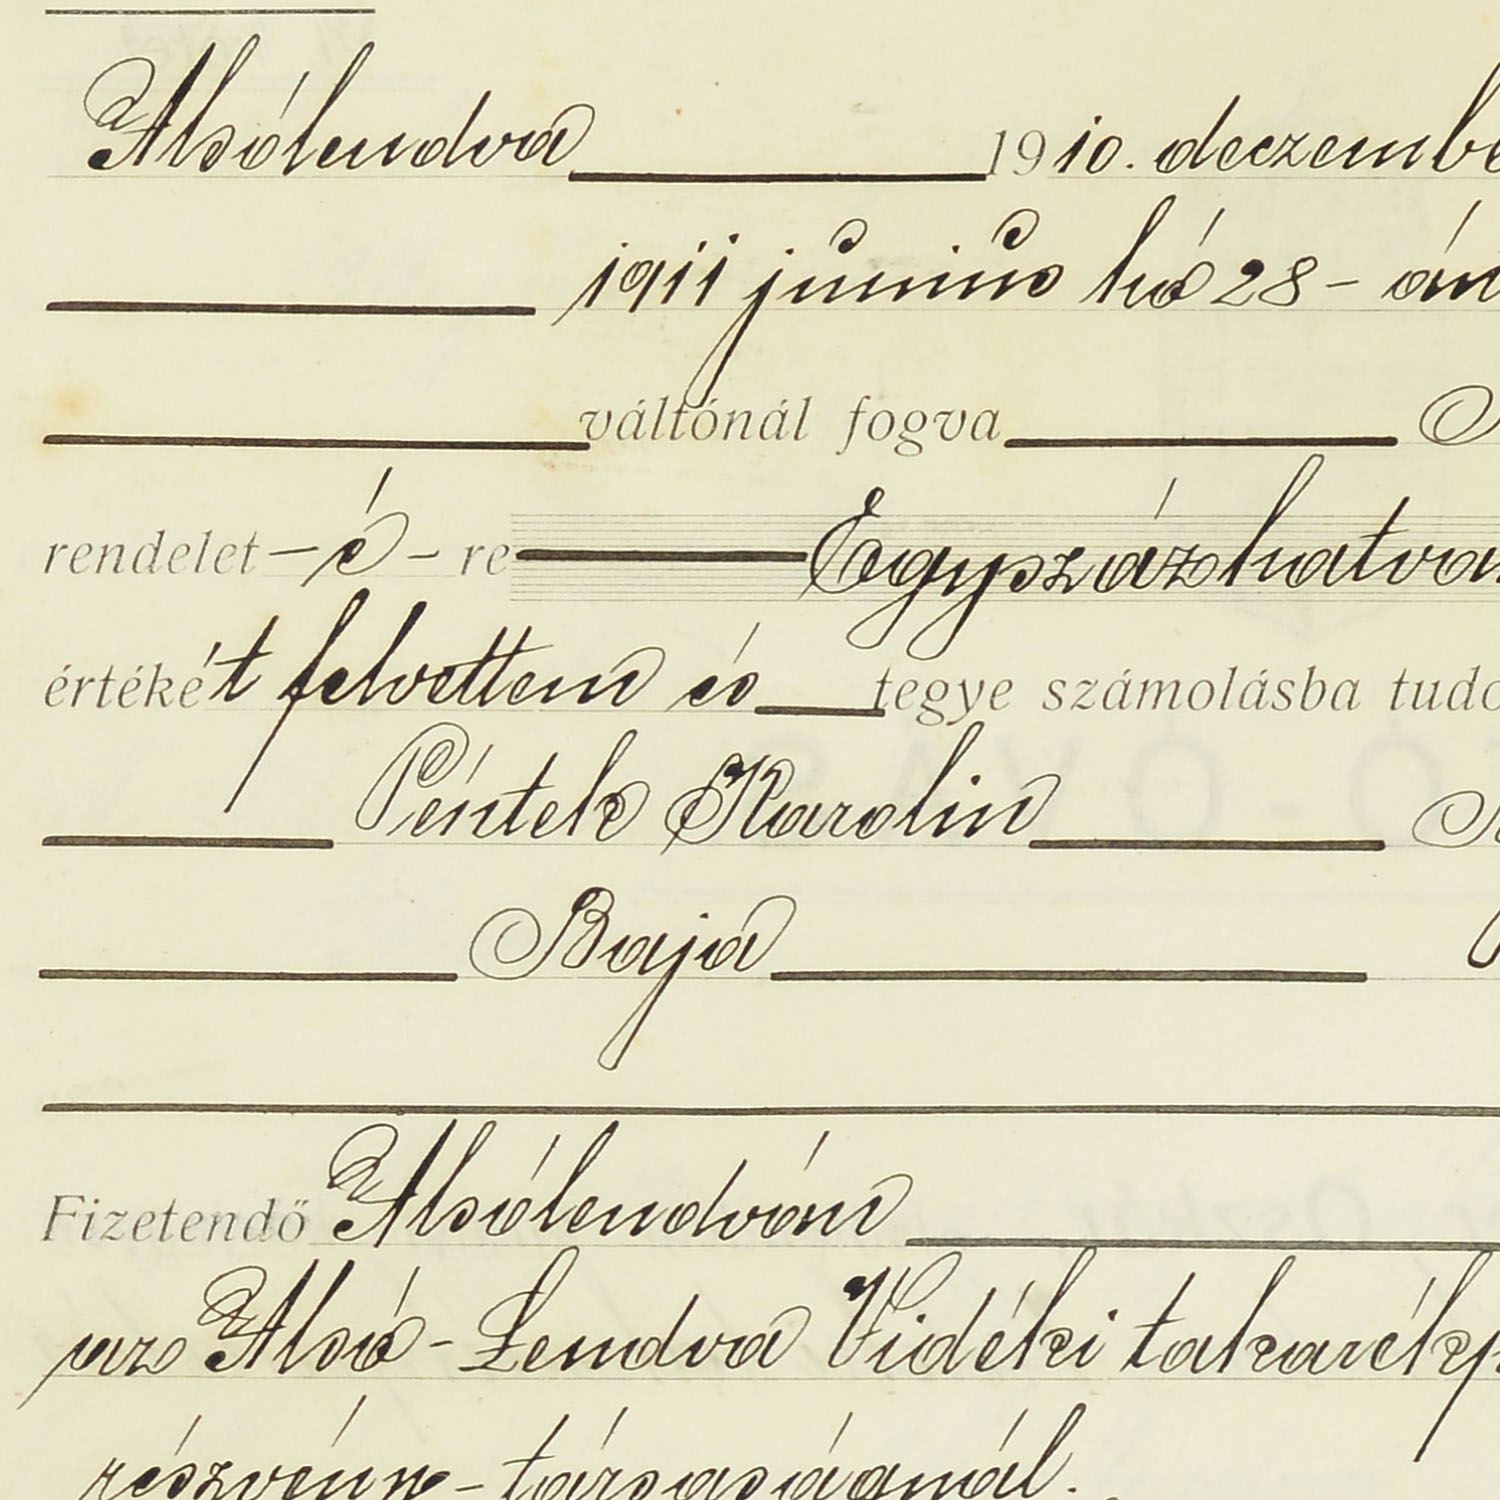 Alsólendva 1910. deczembe
1911 június hó 28-án
váltónál fogva
rendelet-é-re Egyszázhatva
értékét felvettem és tegye számolásba tudo
Péntek Karolin
Baja
Fizetendő Alsólendván
az Alsó-Lendva Vidéki takarékp
részvény-társaságnál.